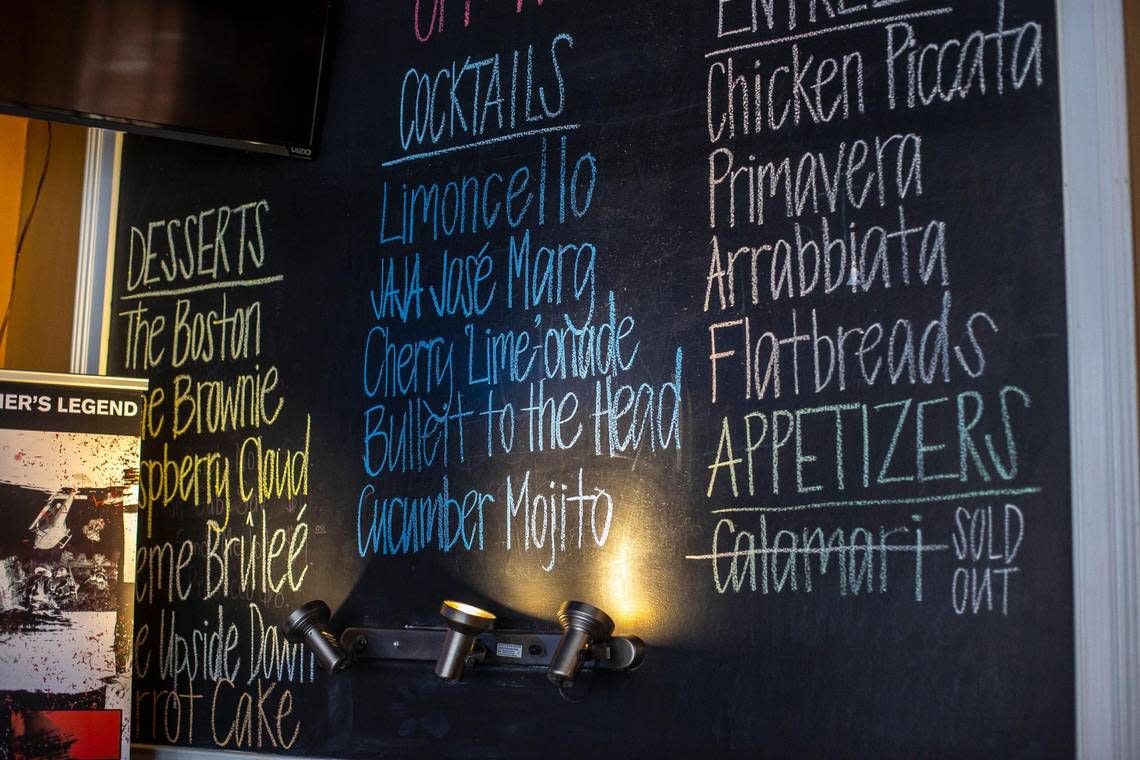 VIZIO
DESSERTS
The Boston
Brownie
Cloud
Brûleé
Upside Down
Cake
COCKTAILS
Limoncello
JAJA José Marg
Cherry 'Lime'-onade
Bulleit to the Head
Cucumber Mojito
Chicken Piccata
Primavera
Arrabbiata
Flatbreads
APPETIZERS
Calamari SOLD
OUT
LEGEND